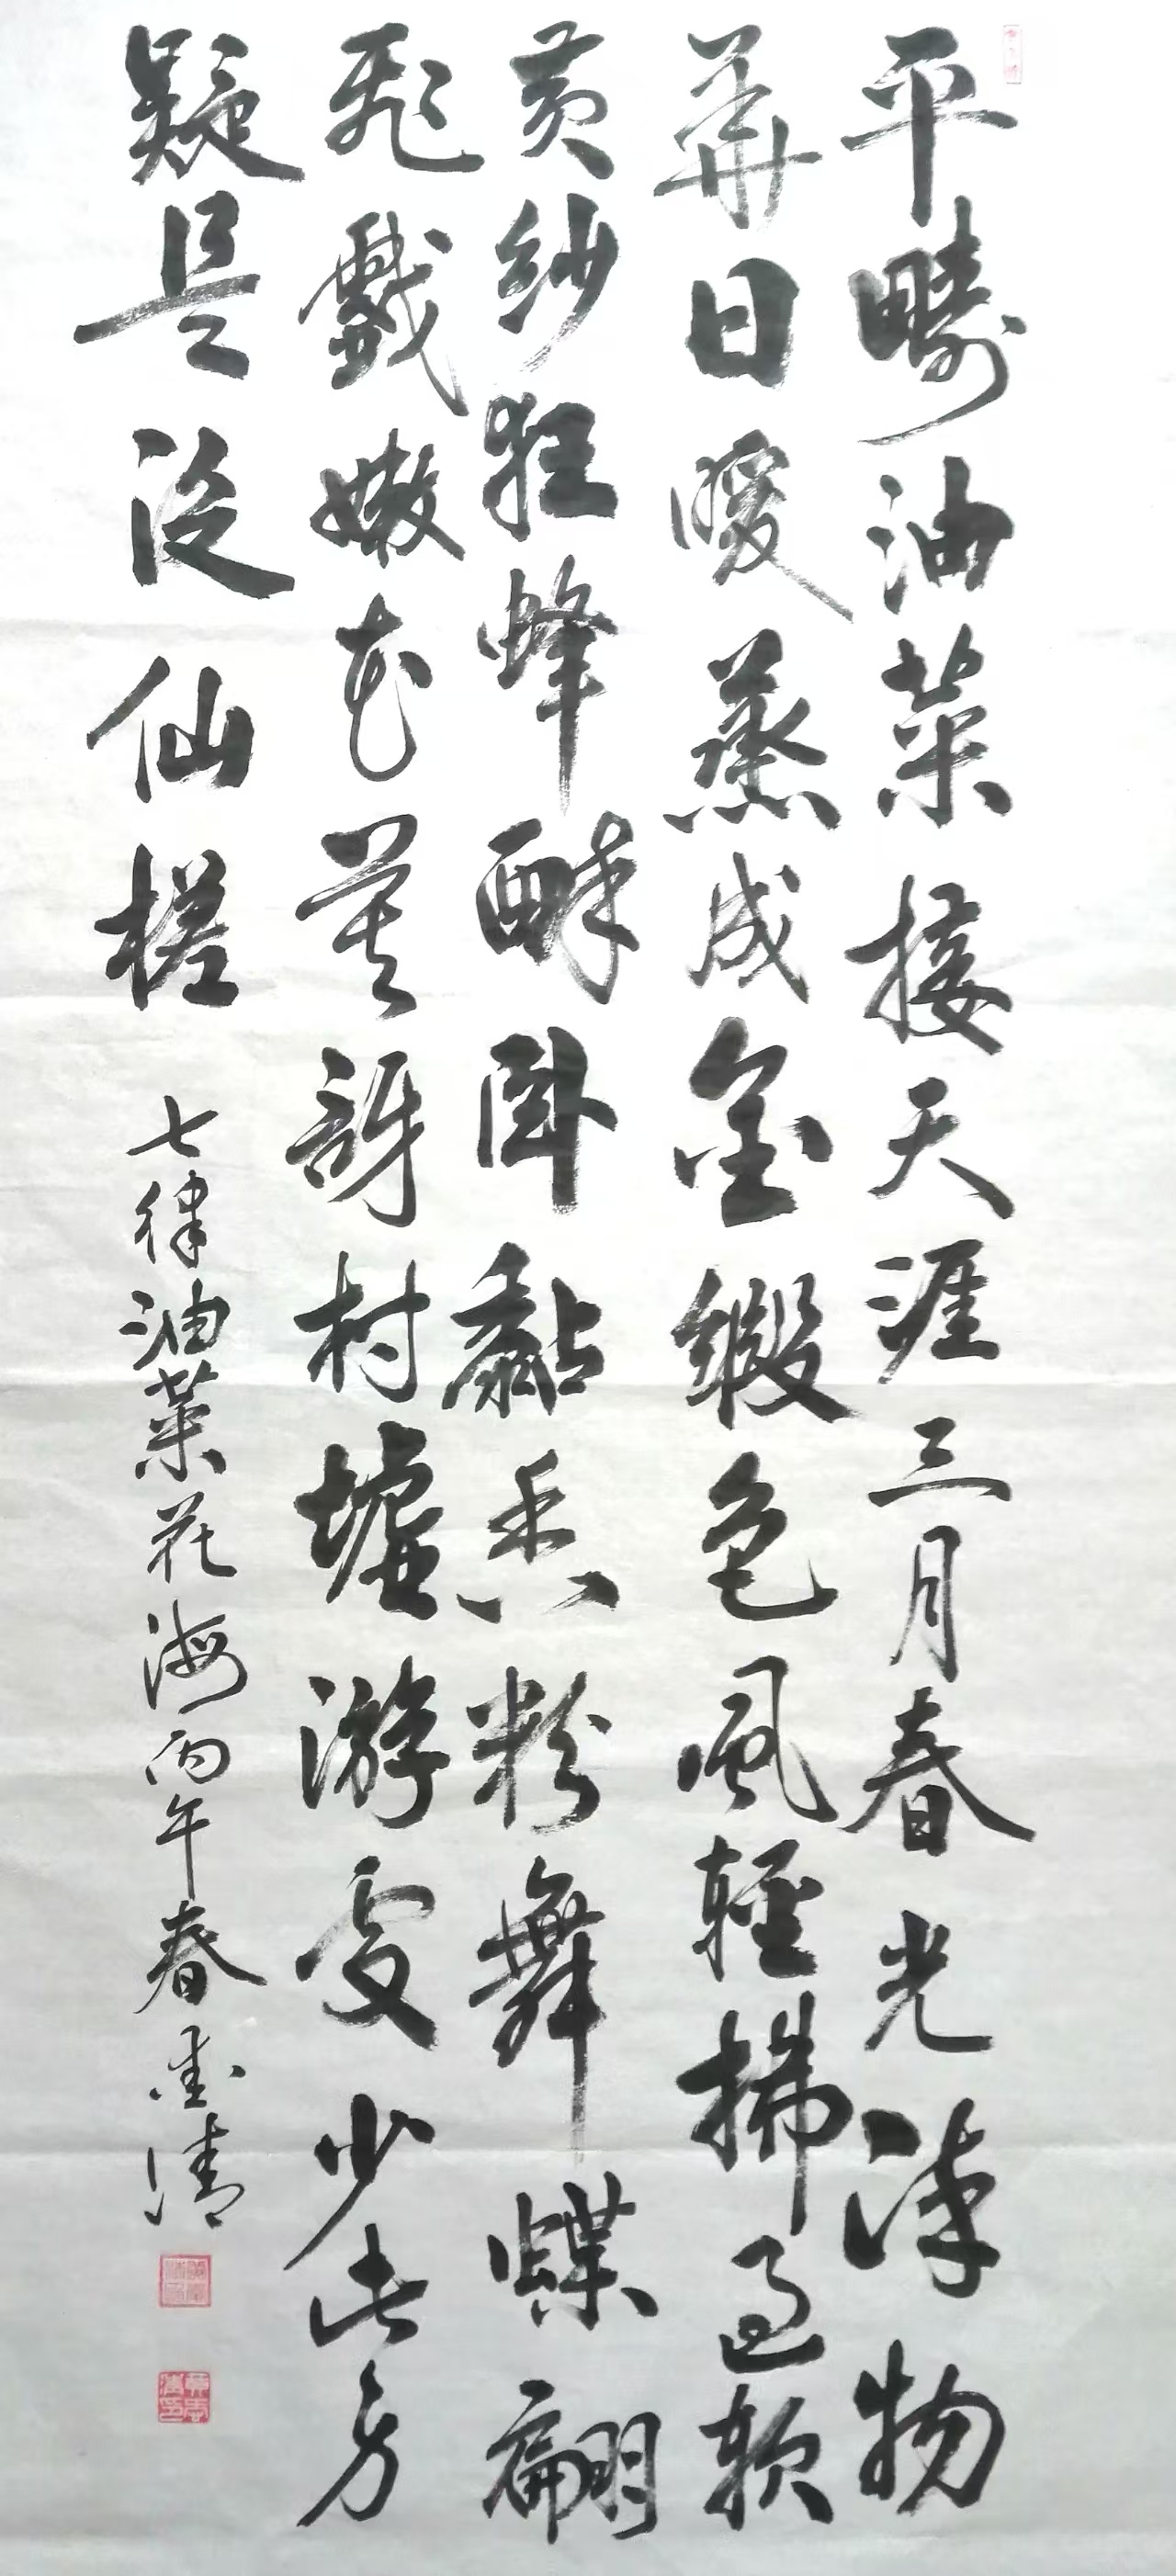 平疇油菜接天涯三月春光淖物
華日暖蒸成金緞色風輕拂過軟
黄紗狂蜂醉臥黏香粉舞蝶翩
飛戲嫩花莫訝村墟游更少此身
疑是泛仙槎
七律油菜花海丙午春 清